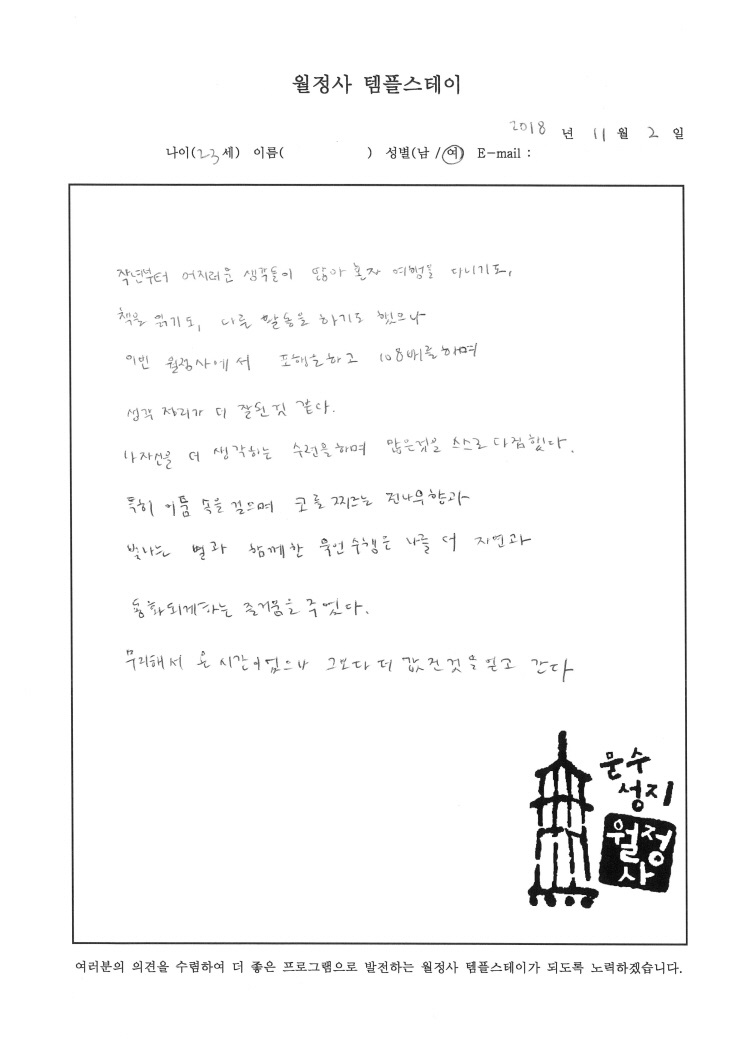 월정사 템플스테이
2018 년 11 월 2 일
나이(23세) 이름( ) 성별(남 / 여) E-mail :
작년부터 어지러운 생각들이 많아 혼자 여행을 다니기도,
책을 읽기도, 다른 활동을 하기도 했으나
이번 월정사에서 포행을하고 108배를하며
생각 정리가 더 잘된것 같다.
나자신을 더 생각하는 수련을하며 많은것을 스스로 다짐했다.
특히 어둠 속을 걸으며 코를 찌르는 전나무향과
빛나는 별과 함께한 묵언수행은 나를 더 자연과
동화되게하는 즐거움을 주었다.
무리해서 온 시간이었으나 그보다 더 값진것을 얻고 간다
문수
성지
월정
사
여러분의 의견을 수렴하여 더 좋은 프로그램으로 발전하는 월정사 템플스테이가 되도록 노력하겠습니다.